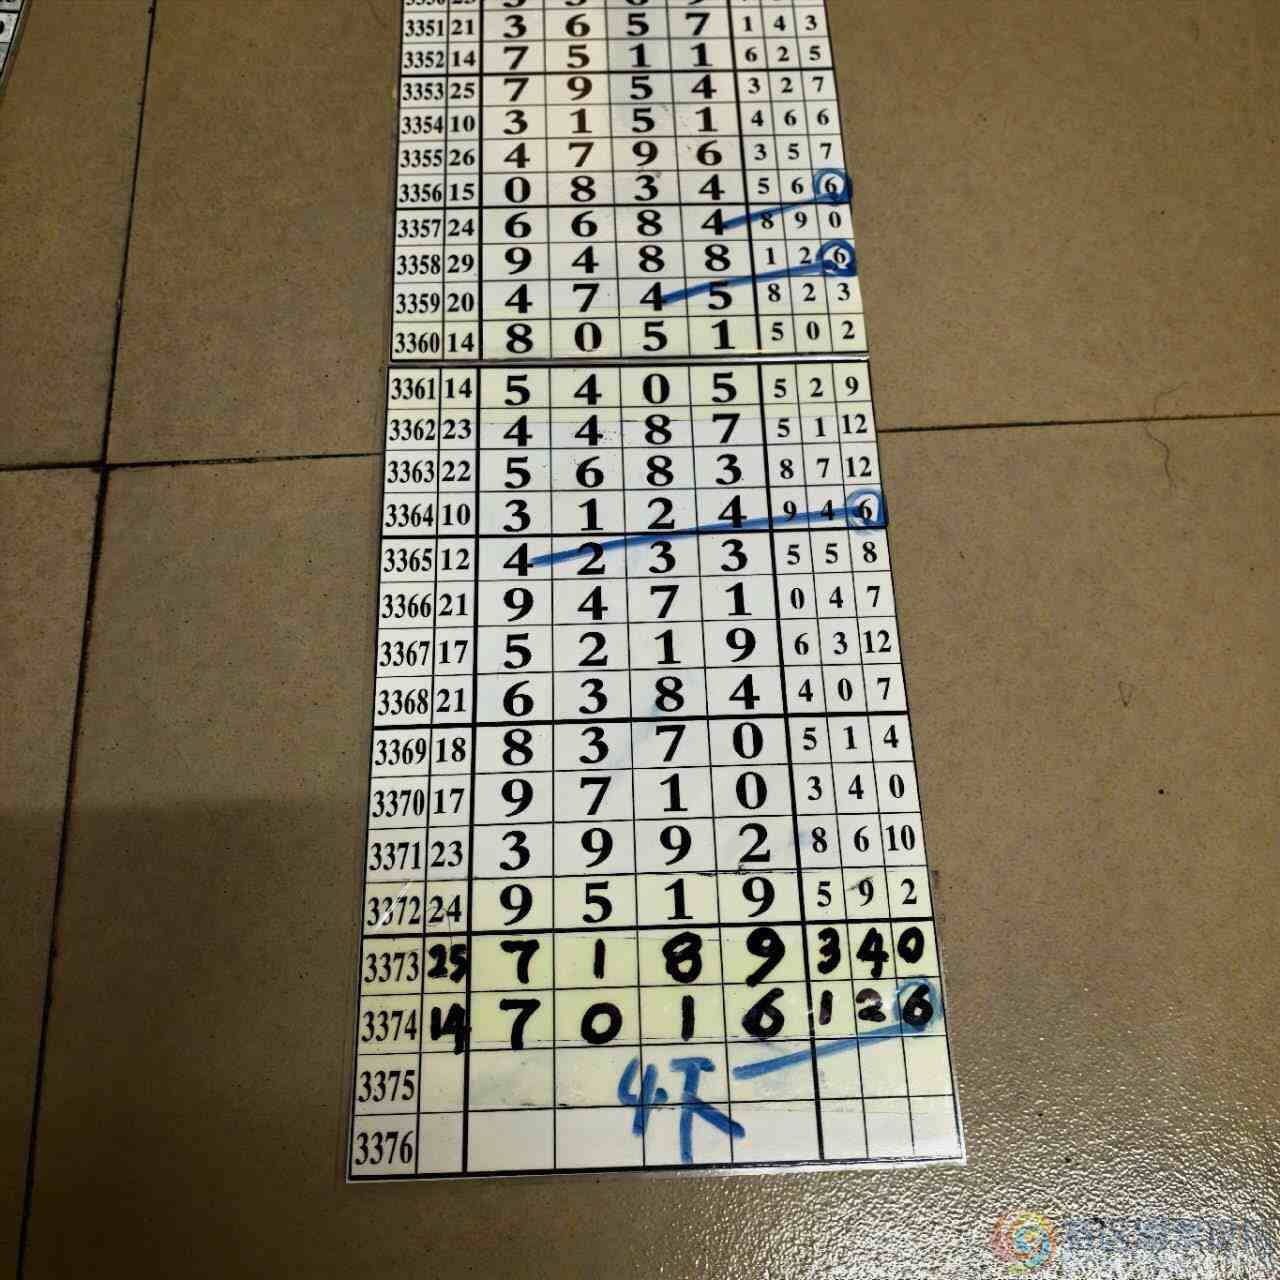 3351 21 3 6 5 7 1 4 3
3352 14 7 5 1 1 6 2 5
3353 25 7 9 5 4 3 2 7
3354 10 3 1 5 1 4 6 6
3355 26 4 7 9 6 3 5 7
3356 15 0 8 3 4 5 6 6
3357 24 6 6 8 4 8 9 0
3358 29 9 4 8 8 1 2 6
3359 20 4 7 4 5 8 2 3
3360 14 8 0 5 1 5 0 2
3361 14 5 4 0 5 5 2 9
3362 23 4 4 8 7 5 1 12
3363 22 5 6 8 3 8 7 12
3364 10 3 1 2 4 9 4 6
3365 12 4 2 3 3 5 5 8
3366 21 9 4 7 1 0 4 7
3367 17 5 2 1 9 6 3 12
3368 21 6 3 8 4 4 0 7
3369 18 8 3 7 0 5 1 4
3370 17 9 7 1 0 3 4 0
3371 23 3 9 9 2 8 6 10
3372 24 9 5 1 9 5 9 2
3373 25 7 1 8 9 3 4 0
3374 14 7 0 1 6 1 2 6
3375 4天
3376